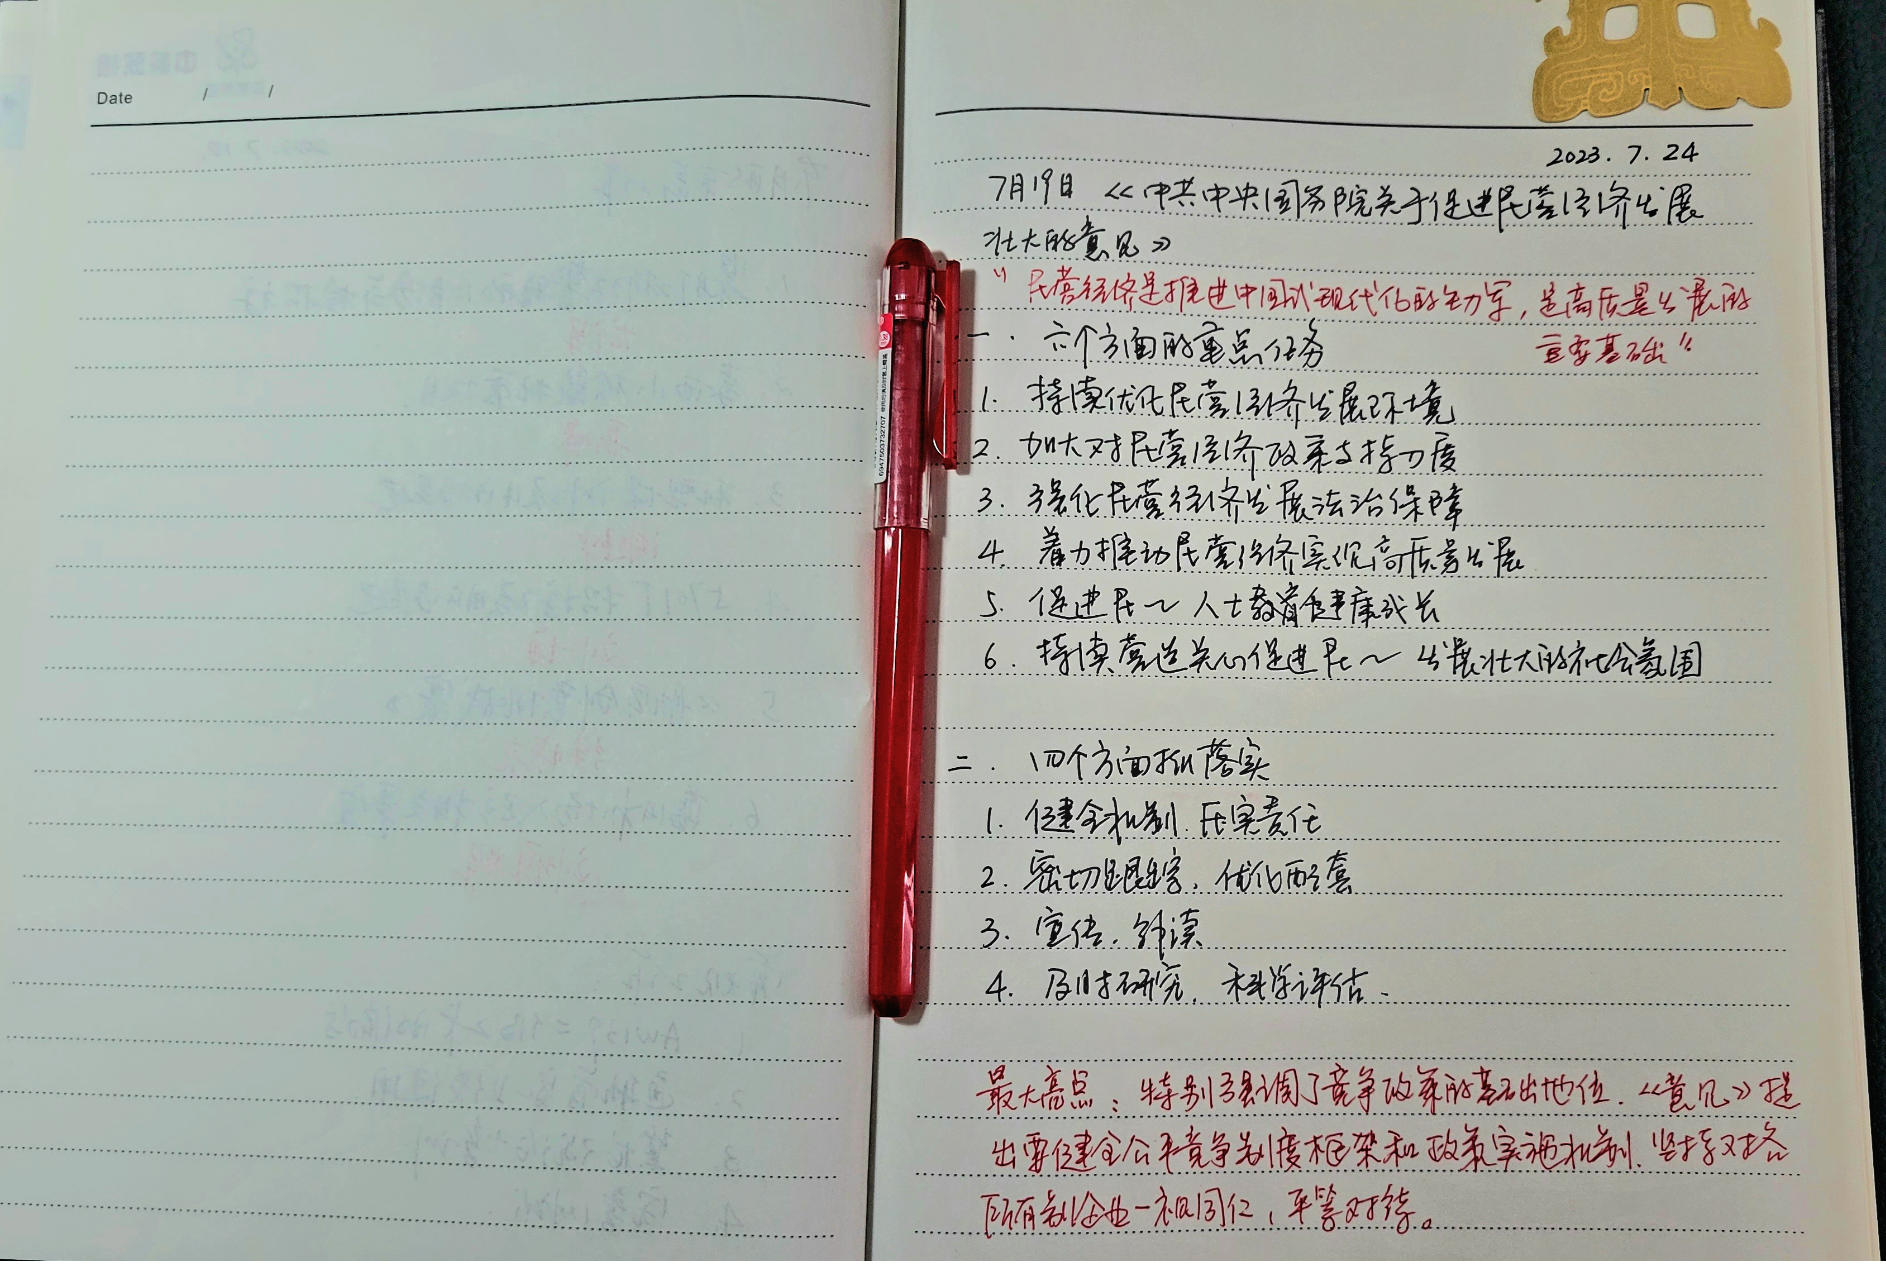 Date / /
2023.7.24
7月19日《中共中央国务院关于促进民营经济发展
壮大的意见》
“民营经济是推进中国式现代化的生力军，是高质量发展的
重要基础”
一. 六个方面的重点任务
1. 持续优化民营经济发展环境
2. 加大对民营经济政策支持力度
3. 强化民营经济发展法治保障
4. 着力推动民营经济实现高质量发展
5. 促进民～人士教育健康成长
6. 持续营造关心促进民～发展壮大的社会氛围
二. 四个方面抓落实
1. 健全机制.压实责任
2. 密切跟踪，优化配套
3. 宣传.解读
4. 及时研究，科学评估.
最大亮点：特别强调了竞争政策的基础地位.《意见》提
出要健全公平竞争制度框架和政策实施机制.坚持对各
所有制企业一视同仁，平等对待。
6947503732707